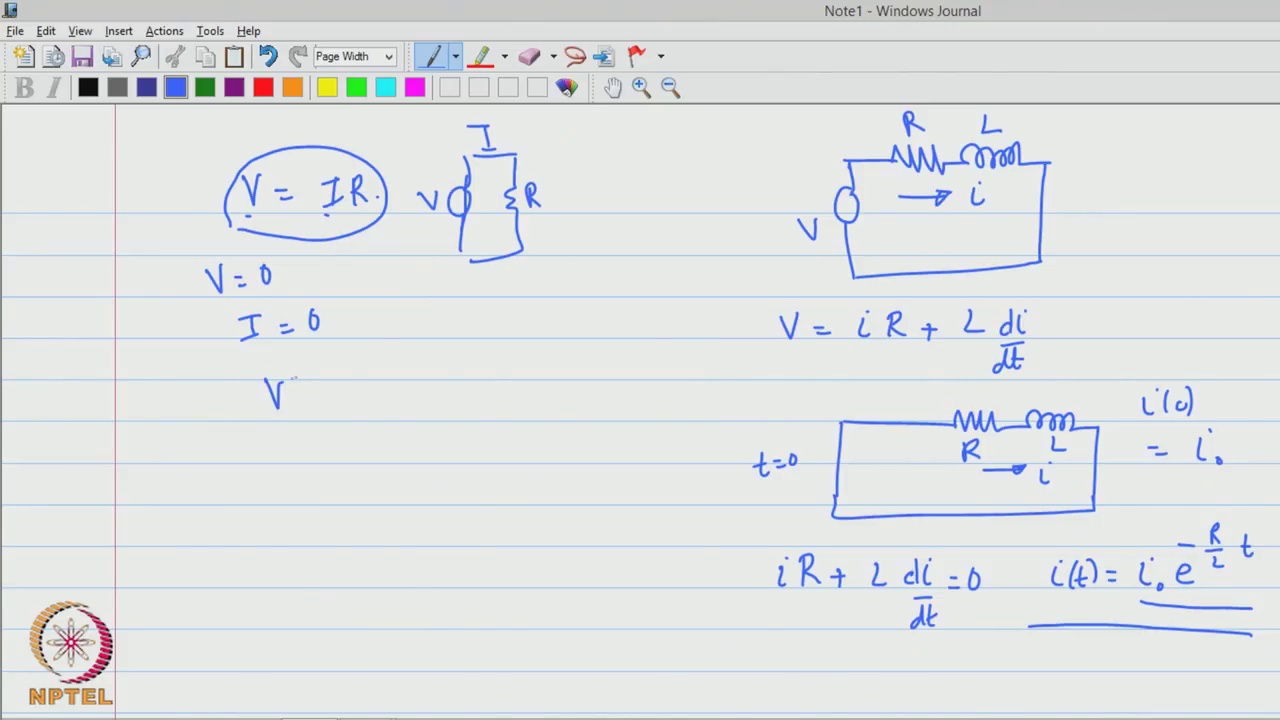 Note1 - Windows Journal
File Edit View Insert Actions Tools Help
Page Width
B I
V = IR.
I
V
R
V = 0
I = 0
V
R L
i
V
V = iR + L di/dt
t=0
R L
i
i(0)
= i₀
iR + L di/dt = 0
i(t) = i₀ e^(-R/L t)
NPTEL